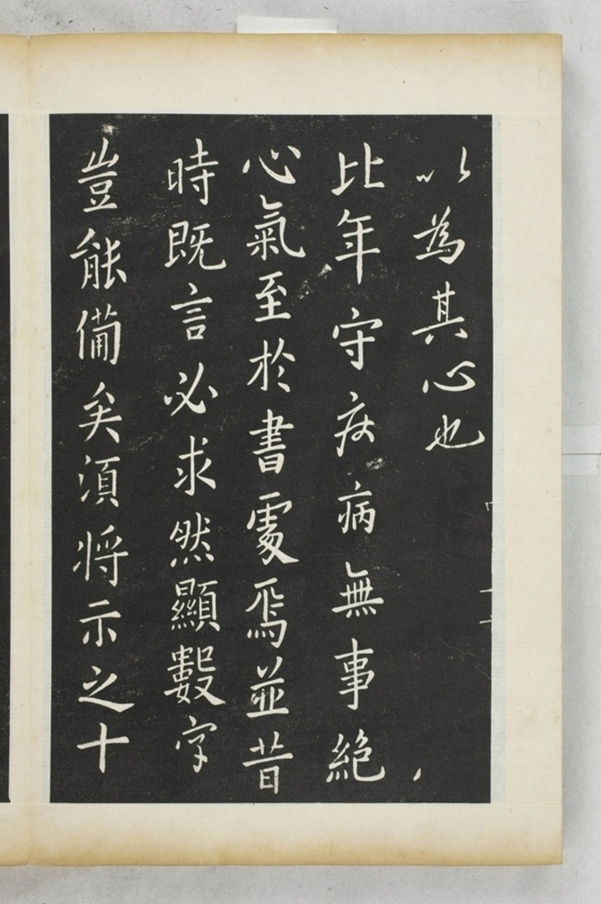 以為其心也
比年守疾病無事絶
心氣至於書處焉並昔
時既言必求然顯數字
豈能備矣須將示之十